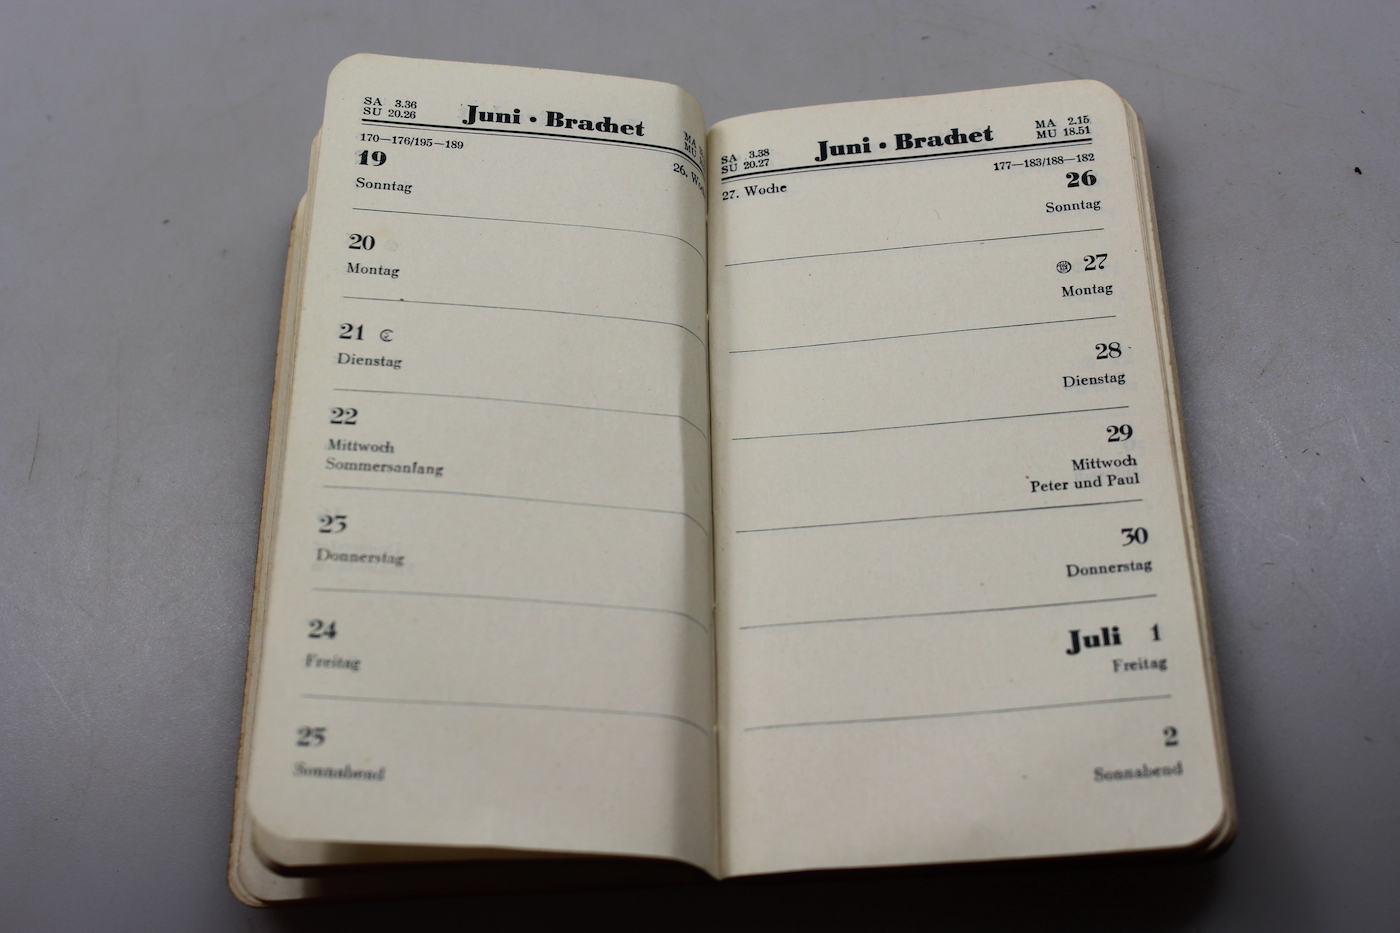 SA 3.36
SU 20.26
Juni • Brachet
MA
MU
170—176/195—189
26.
19
Sonntag
20
Montag
21
Dienstag
22
Mittwoch
Sommersanfang
23
Donnerstag
24
Freitag
25
Sonnabend
SA 3.38
SU 20.27
Juni • Brachet
MA 2.15
MU 18.51
27. Woche
177—183/188—182
26
Sonntag
27
Montag
28
Dienstag
29
Mittwoch
Peter und Paul
30
Donnerstag
Juli 1
Freitag
2
Sonnabend